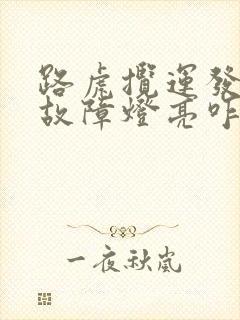 路虎攬運發
故障燈亮咋
一夜秋嵐